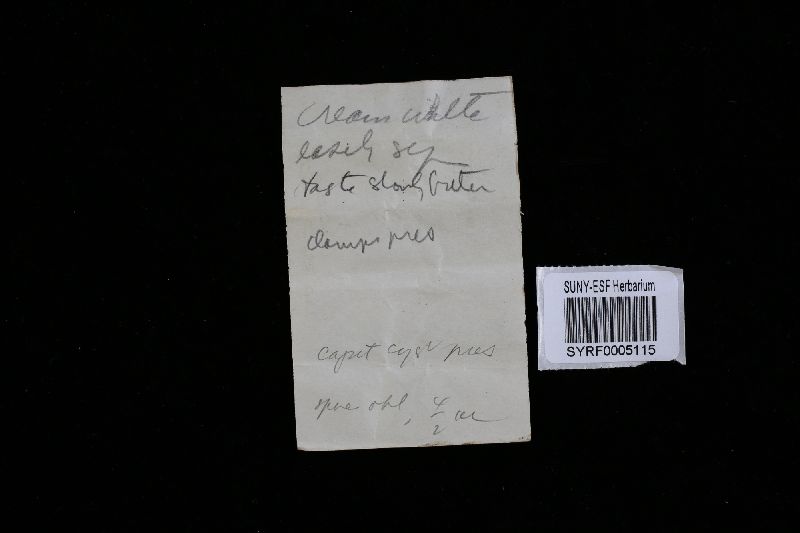 Cream white
easily sep
taste slowly bitter
clamps pres
capit cyst pres
spore obl, 4/2 
SUNY-ESF Herbarium
SYRF0005115